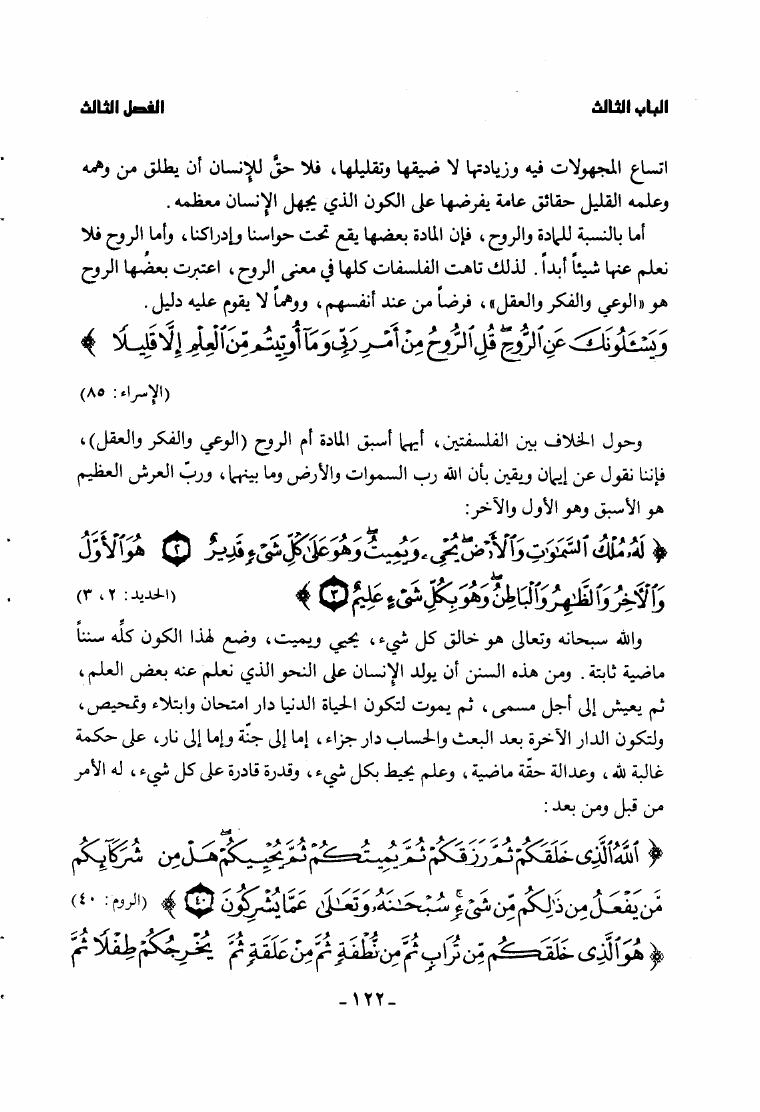 الباب الثالث
الفصل الثالث
اتساع المجهولات فيه وزيادتها لا ضيقها وتقليلها، فلا حقَّ للإنسان أن يطلق من وهمه
وعلمه القليل حقائق عامة يفرضها على الكون الذي يجهل الإنسان معظمه.
أما بالنسبة للمادة والروح، فإن المادة بعضها يقع تحت حواسنا وإدراكنا، وأما الروح فلا
نعلم عنها شيئاً أبداً. لذلك تاهت الفلسفات كلها في معنى الروح، اعتبرت بعضُها الروح
هو «الوعي والفكر والعقل»، فرضاً من عند أنفسهم، ووهماً لا يقوم عليه دليل.
وَيَسْـَٔلُونَكَ عَنِ ٱلرُّوحِ ۖ قُلِ ٱلرُّوحُ مِنْ أَمْرِ رَبِّى وَمَآ أُوتِيتُم مِّنَ ٱلْعِلْمِ إِلَّا قَلِيلًا ﴾
(الإسراء: ٨٥)
وحول الخلاف بين الفلسفتين، أيهما أسبق المادة أم الروح (الوعي والفكر والعقل)،
فإننا نقول عن إيمان ويقين بأن الله رب السموات والأرض وما بينهما، وربّ العرش العظيم
هو الأسبق وهو الأول والآخر:
﴿ لَهُۥ مُلْكُ ٱلسَّمَٰوَٰتِ وَٱلْأَرْضِ ۖ يُحْىِۦ وَيُمِيتُ ۖ وَهُوَ عَلَىٰ كُلِّ شَىْءٍ قَدِيرٌ ٢ هُوَ ٱلْأَوَّلُ
وَٱلْـَٔاخِرُ وَٱلظَّٰهِرُ وَٱلْبَاطِنُ ۖ وَهُوَ بِكُلِّ شَىْءٍ عَلِيمٌ ٣ ﴾ (الحديد: ٢، ٣)
والله سبحانه وتعالى هو خالق كل شيء، يحيي ويميت، وضع لهذا الكون كلّه سنناً
ماضية ثابتة. ومن هذه السنن أن يولد الإنسان على النحو الذي نعلم عنه بعض العلم،
ثم يعيش إلى أجل مسمى، ثم يموت لتكون الحياة الدنيا دار امتحان وابتلاء وتمحيص،
ولتكون الدار الآخرة بعد البعث والحساب دار جزاء، إما إلى جنّة وإما إلى نار، على حكمة
غالبة لله، وعدالة حقّة ماضية، وعلم يحيط بكل شيء، وقدرة قادرة على كل شيء، له الأمر
من قبل ومن بعد:
﴿ ٱللَّهُ ٱلَّذِى خَلَقَكُمْ ثُمَّ رَزَقَكُمْ ثُمَّ يُمِيتُكُمْ ثُمَّ يُحْيِيكُمْ ۖ هَلْ مِن شُرَكَآئِكُم
مَّن يَفْعَلُ مِن ذَٰلِكُم مِّن شَىْءٍ ۚ سُبْحَٰنَهُۥ وَتَعَٰلَىٰ عَمَّا يُشْرِكُونَ ٤٠ ﴾ (الروم: ٤٠)
﴿ هُوَ ٱلَّذِى خَلَقَكُم مِّن تُرَابٍ ثُمَّ مِن نُّطْفَةٍ ثُمَّ مِنْ عَلَقَةٍ ثُمَّ يُخْرِجُكُمْ طِفْلًا ثُمَّ
-١٢٢-